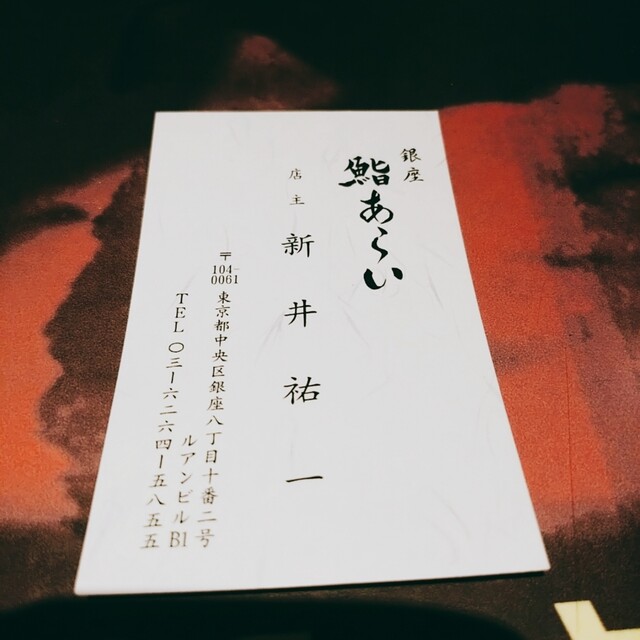 銀座
鮨あらい
店主 新井祐一
〒104-0061 東京都中央区銀座八丁目十番二号
ルアンビルB1
TEL 〇三ー六二六四ー五八五五